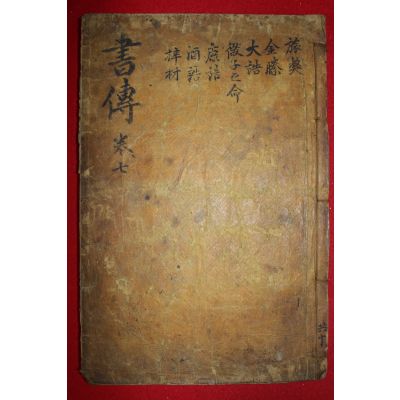 旅獒
金縢
大誥
微子之命
康誥
酒誥
梓材
書傳
卷七